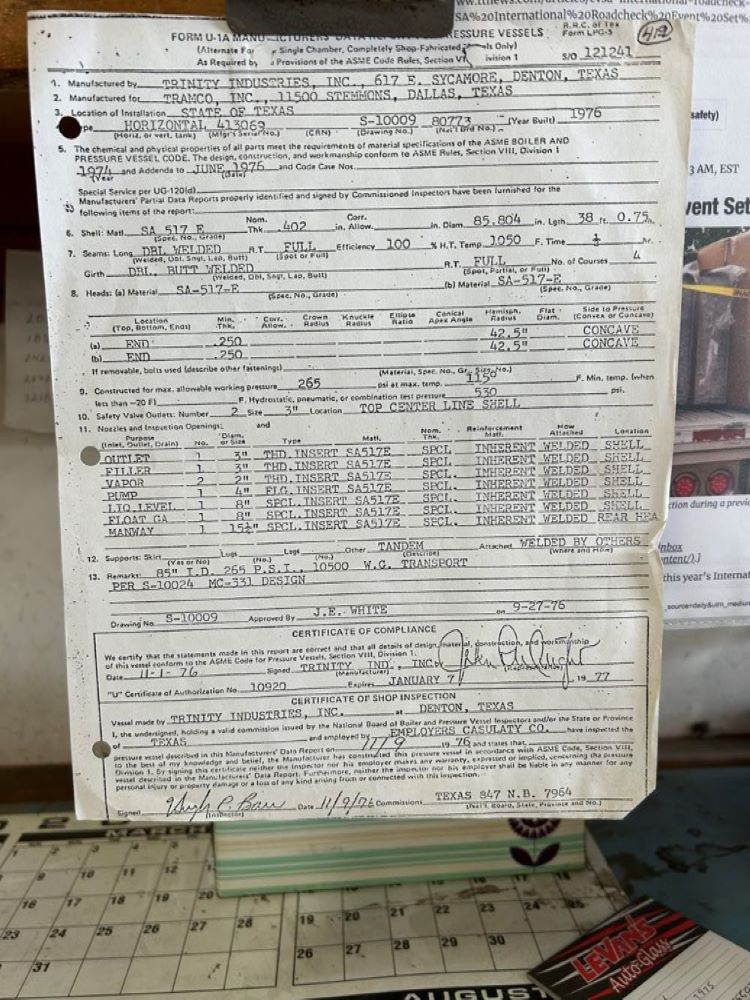 SA%20International%20Roadcheck%20Event%20Set%
R.R.C. of Tex
Form LPG-5
412
FORM U-1A MANU DATA RESSURE VESSELS
(Alternate For Single Chamber, Completely Shop-Fabricated Only)
As Required by Provisions of the ASME Code Rules, Section VI ivision 1
S/O 121241
1. Manufactured by TRINITY INDUSTRIES, INC., 617 E. SYCAMORE, DENTON, TEXAS
2. Manufactured for TRAMCO, INC., 11500 STEMMONS, DALLAS, TEXAS
3. Location of Installation STATE OF TEXAS
pe HORIZONTAL 413069 S-10009 80773 (Year Built) 1976
(Horiz. or vert. tank) (Mfgr's Serial No.) (CRN) (Drawing No.) (Nat'l Brd No.)
5. The chemical and physical properties of all parts meet the requirements of material specifications of the ASME BOILER AND
PRESSURE VESSEL CODE. The design, construction, and workmanship conform to ASME Rules, Section VIII, Division 1
1974 and Addenda to JUNE, 1976 and Code Case Nos.
(Year) (Date)
Special Service per UG-120(d)
Manufacturers' Partial Data Reports properly identified and signed by Commissioned Inspectors have been furnished for the
following items of the report:
6. Shell: Matl. SA 517 E Nom. Thk. .402 in. Corr. Allow. in. Diam. 85.804 in. Lgth 38 ft. 0.75
(Spec. No., Grade)
7. Seams: Long DBL WELDED R.T. FULL Efficiency 100 % H.T. Temp 1050 F. Time Hr.
(Welded, Dbl, Sngl, Lap, Butt) (Spot or Full)
Girth DBL. BUTT WELDED R.T. FULL No. of Courses 4
(Welded, Dbl, Sngl, Lap, Butt) (Spot, Partial, or Full)
8. Heads: (a) Material SA-517-E (b) Material SA-517-E
(Spec. No., Grade) (Spec. No., Grade)
Location (Top, Bottom, Ends) Min. Thk. Corr. Allow. Crown Radius Knuckle Radius Ellipse Ratio Conical Apex Angle Hemisph. Radius Flat Diam. Side to Pressure (Convex or Concave)
(a) END .250 42.5" CONCAVE
(b) END .250 42.5" CONCAVE
If removable, bolts used (describe other fastenings)
(Material, Spec. No., Gr., Size, No.)
9. Constructed for max. allowable working pressure 265 psi at max. temp. 1150 F. Min. temp. (when
less than -20 F) F. Hydrostatic, pneumatic, or combination test pressure 530 psi.
10. Safety Valve Outlets: Number 2 Size 3" Location TOP CENTER LINE SHELL
11. Nozzles and Inspection Openings: and
Purpose (Inlet, Outlet, Drain) No. Diam. or Size Type Matl. Nom. Thk. Reinforcement Matl. How Attached Location
OUTLET 1 3" THD. INSERT SA517E SPCL INHERENT WELDED SHELL
FILLER 1 3" THD. INSERT SA517E SPCL. INHERENT WELDED SHELL
VAPOR 2 2" THD. INSERT SA517E SPCL. INHERENT WELDED SHELL
PUMP 1 4" FLG. INSERT SA517E SPCL. INHERENT WELDED SHELL
LIQ LEVEL 1 8" SPCL. INSERT SA517E SPCL. INHERENT WELDED SHELL
FLOAT GA 1 8" SPCL. INSERT SA517E SPCL. INHERENT WELDED SHELL
MANWAY 1 15½" SPCL. INSERT SA517E SPCL. INHERENT WELDED REAR HEA
12. Supports: Skirt Lugs Legs Other TANDEM Attached WELDED BY OTHERS
(Yes or No) (No.) (No.) (Describe) (Where and How)
13. Remarks: 85" I.D. 265 P.S.I., 10500 W.G. TRANSPORT
PER S-10024 MC-331 DESIGN
Drawing No. S-10009 Approved By J.E. WHITE on 9-27-76
CERTIFICATE OF COMPLIANCE
We certify that the statements made in this report are correct and that all details of design, material, construction, and workmanship
of this vessel conform to the ASME Code for Pressure Vessels, Section VIII, Division 1.
Date 11-1-76 Signed TRINITY IND., INC. by
(Manufacturer)
"U" Certificate of Authorization No. 10920 Expires JANUARY 7, 19 77
CERTIFICATE OF SHOP INSPECTION
Vessel made by TRINITY INDUSTRIES, INC. at DENTON, TEXAS
I, the undersigned, holding a valid commission issued by the National Board of Boiler and Pressure Vessel Inspectors and/or the State or Province
of TEXAS and employed by EMPLOYERS CASULATY CO. have inspected the
pressure vessel described in this Manufacturers' Data Report on 11/9 19 76 and states that,
to the best of my knowledge and belief, the Manufacturer has constructed this pressure vessel in accordance with ASME Code, Section VIII,
Division 1. By signing this certificate neither the Inspector nor his employer makes any warranty, expressed or implied, concerning the pressure
vessel described in the Manufacturers' Data Report. Furthermore, neither the inspector nor his employer shall be liable in any manner for any
personal injury or property damage or a loss of any kind arising from or connected with this inspection.
Signed Date 11/9/76 Commissions TEXAS 847 N.B. 7964
(Inspector) (Nat'l Board, State, Province and No.)
safety)
3 AM, EST
vent Set
ction during a previo
nbox
ntent/).]
this year's Internat
MARCH
9 10 11 12 13
16 17 18 19 20
23 24 25 26 27 28
31
19 20 21 22 23 24 25
26 27 28 29 30
AUGUST
LEVAN'S
Auto Glass
1975